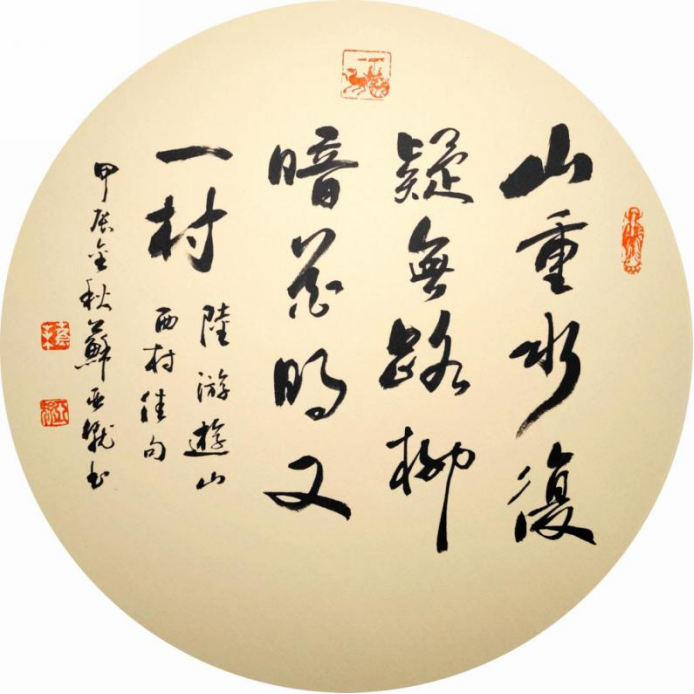 山重水復
疑無路柳
暗花明又
一村
陸游遊山
西村佳句
甲辰金秋蘇亚 书